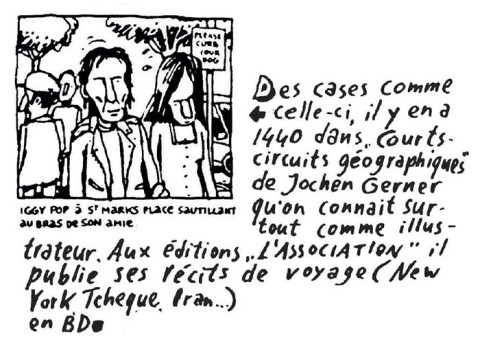 PLEASE
CURB
YOUR
DOG
IGGY POP À ST MARKS PLACE SAUTILLANT
AU BRAS DE SON AMIE.
Des cases comme
← celle-ci, il y en a
1440 dans „Courts-
circuits géographiques"
de Jochen Gerner
qu'on connait sur-
tout comme illus-
trateur. Aux éditions „L'ASSOCIATION" il
publie ses récits de voyage (New
York Tcheque, Iran...)
en BD